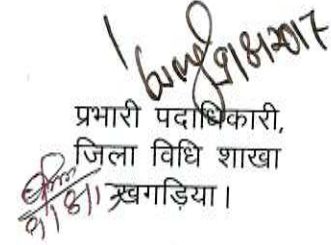 9/8/2017
प्रभारी पदाधिकारी,
जिला विधि शाखा
खगड़िया।
9/8/17